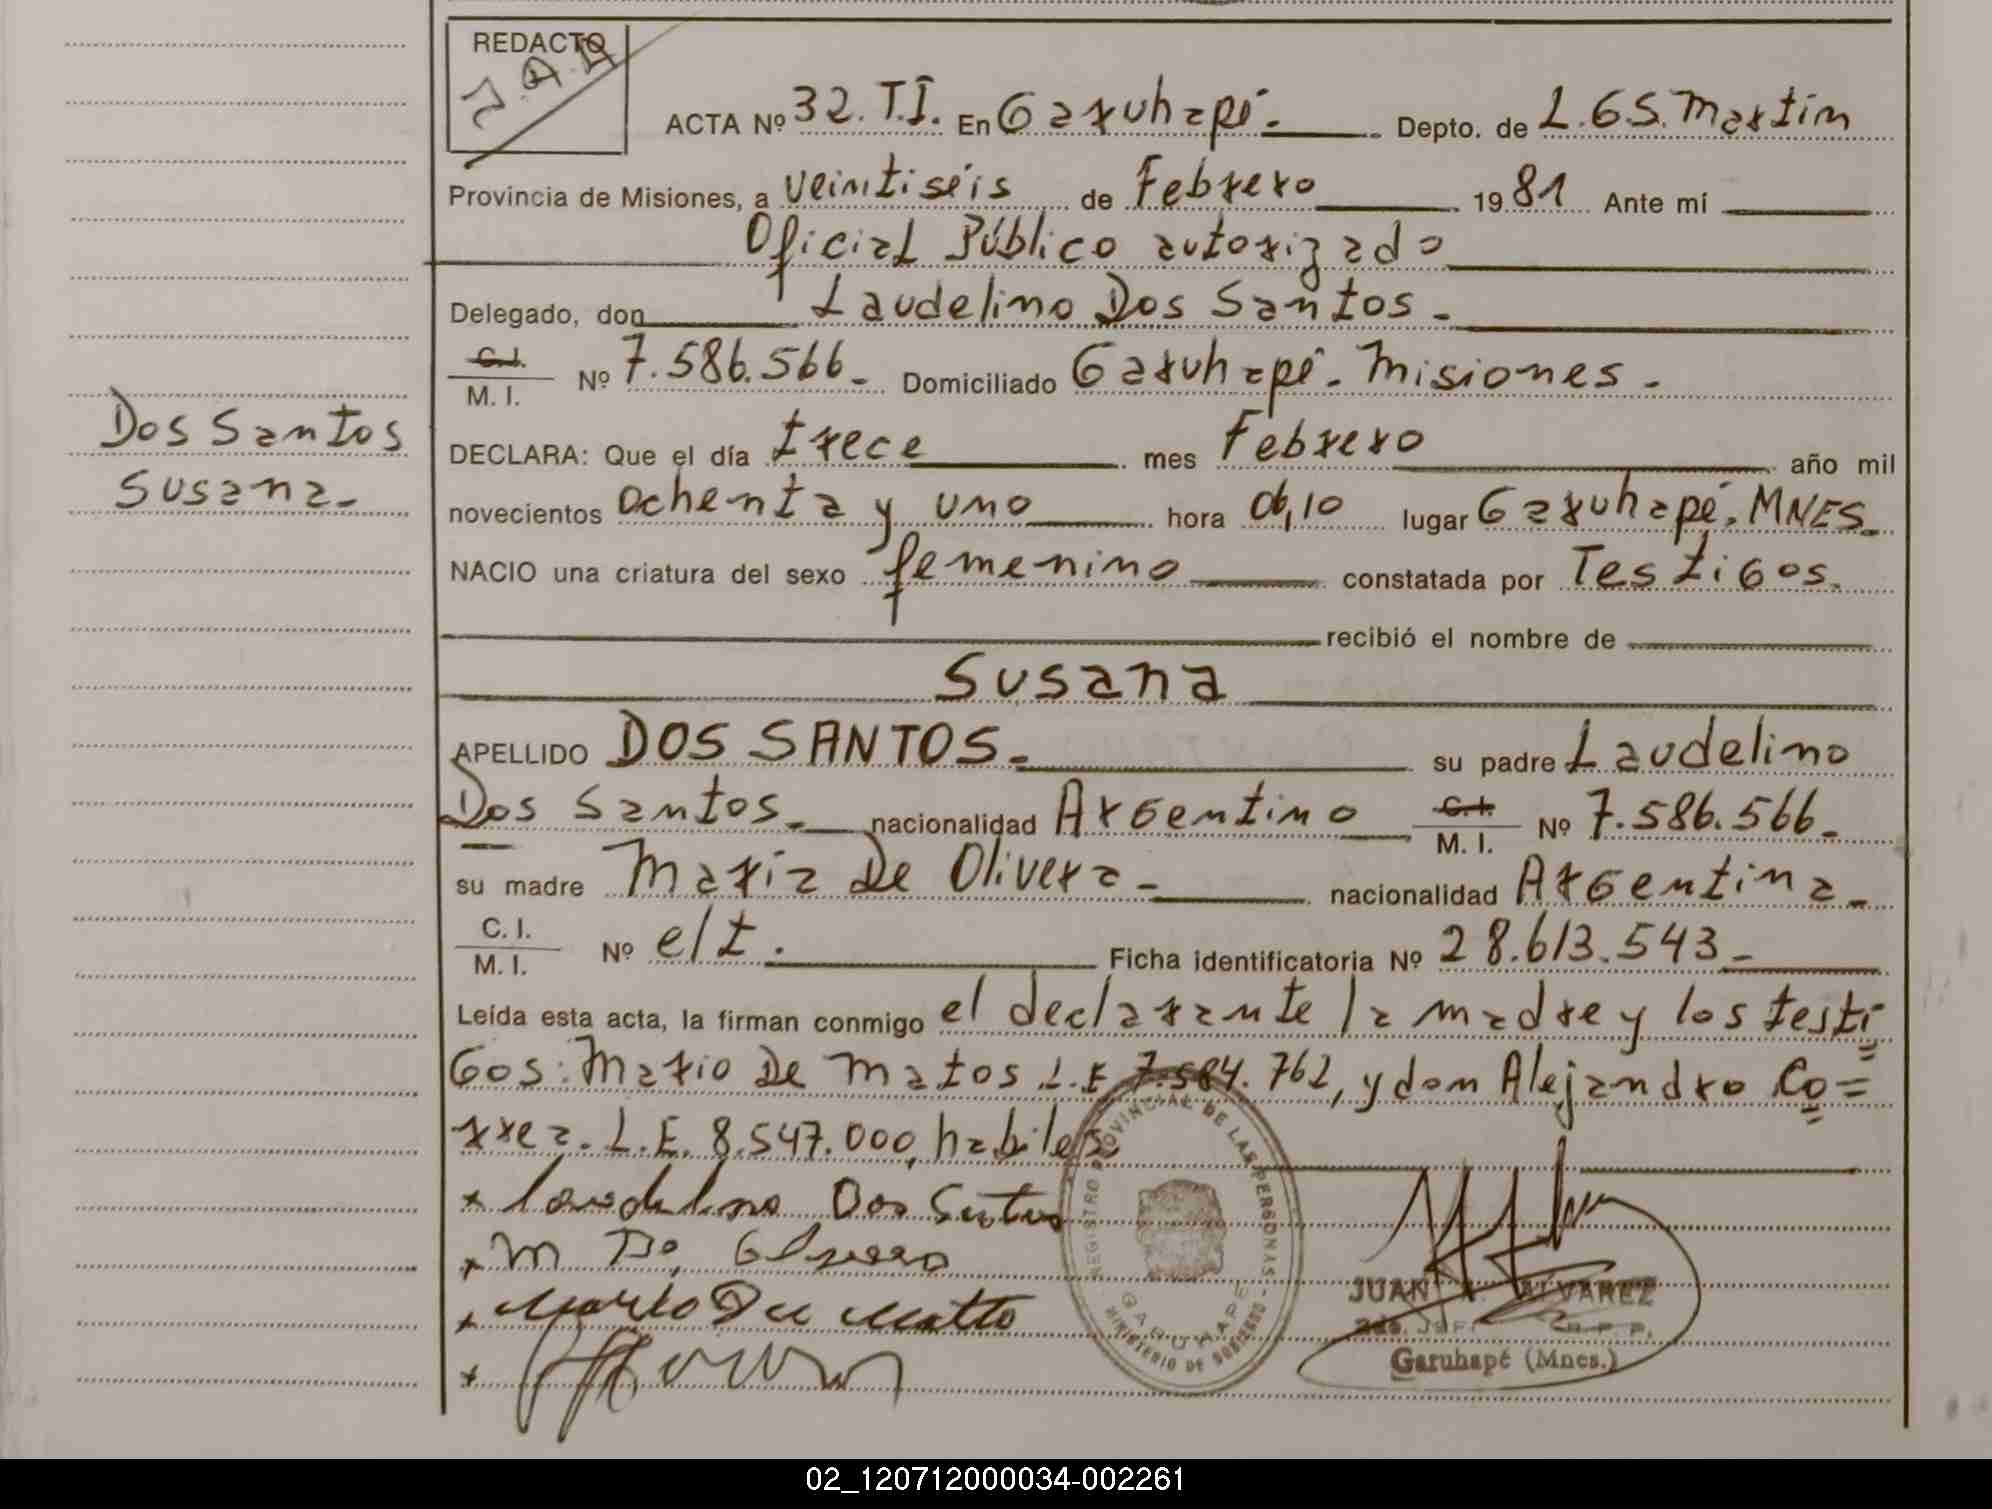 REDACTO
J.A.A
ACTA Nº 32. T.I. En Garuhapé. Depto. de L.G.S. Martin
Provincia de Misiones, a veintiseis de Febrero 1981 Ante mí
Oficial Público autorizado
Delegado, don Laudelino Dos Santos.
C.I.
M. I. Nº 7.586.566. Domiciliado Garuhapé. Misiones.
Dos Santos
Susana.
DECLARA: Que el día trece mes Febrero año mil
novecientos ochenta y uno hora 06,10 lugar Garuhapé. MNES.
NACIO una criatura del sexo femenino constatada por Testigos.
recibió el nombre de
Susana
APELLIDO DOS SANTOS. su padre Laudelino
Dos Santos. nacionalidad Argentino C.I. M. I. Nº 7.586.566.
su madre Maria De Olivera. nacionalidad Argentina.
C. I.
M. I. Nº e/t. Ficha identificatoria Nº 28.613.543.
Leída esta acta, la firman conmigo el declarante la madre y los testi=
gos: Mario De Matos L.E 7.584.762, y don Alejandro Co=
rrea. L.E. 8.547.000, habiles
x Laudelino Dos Santos
x M De
x Mario De Matto
x
REGISTRO PROVINCIAL DE LAS PERSONAS
GARUHAPE
MINISTERIO DE GOBIERNO
JUAN A. ALVAREZ
R. P. P.
Garuhapé (Mnes.)
02_120712000034-002261